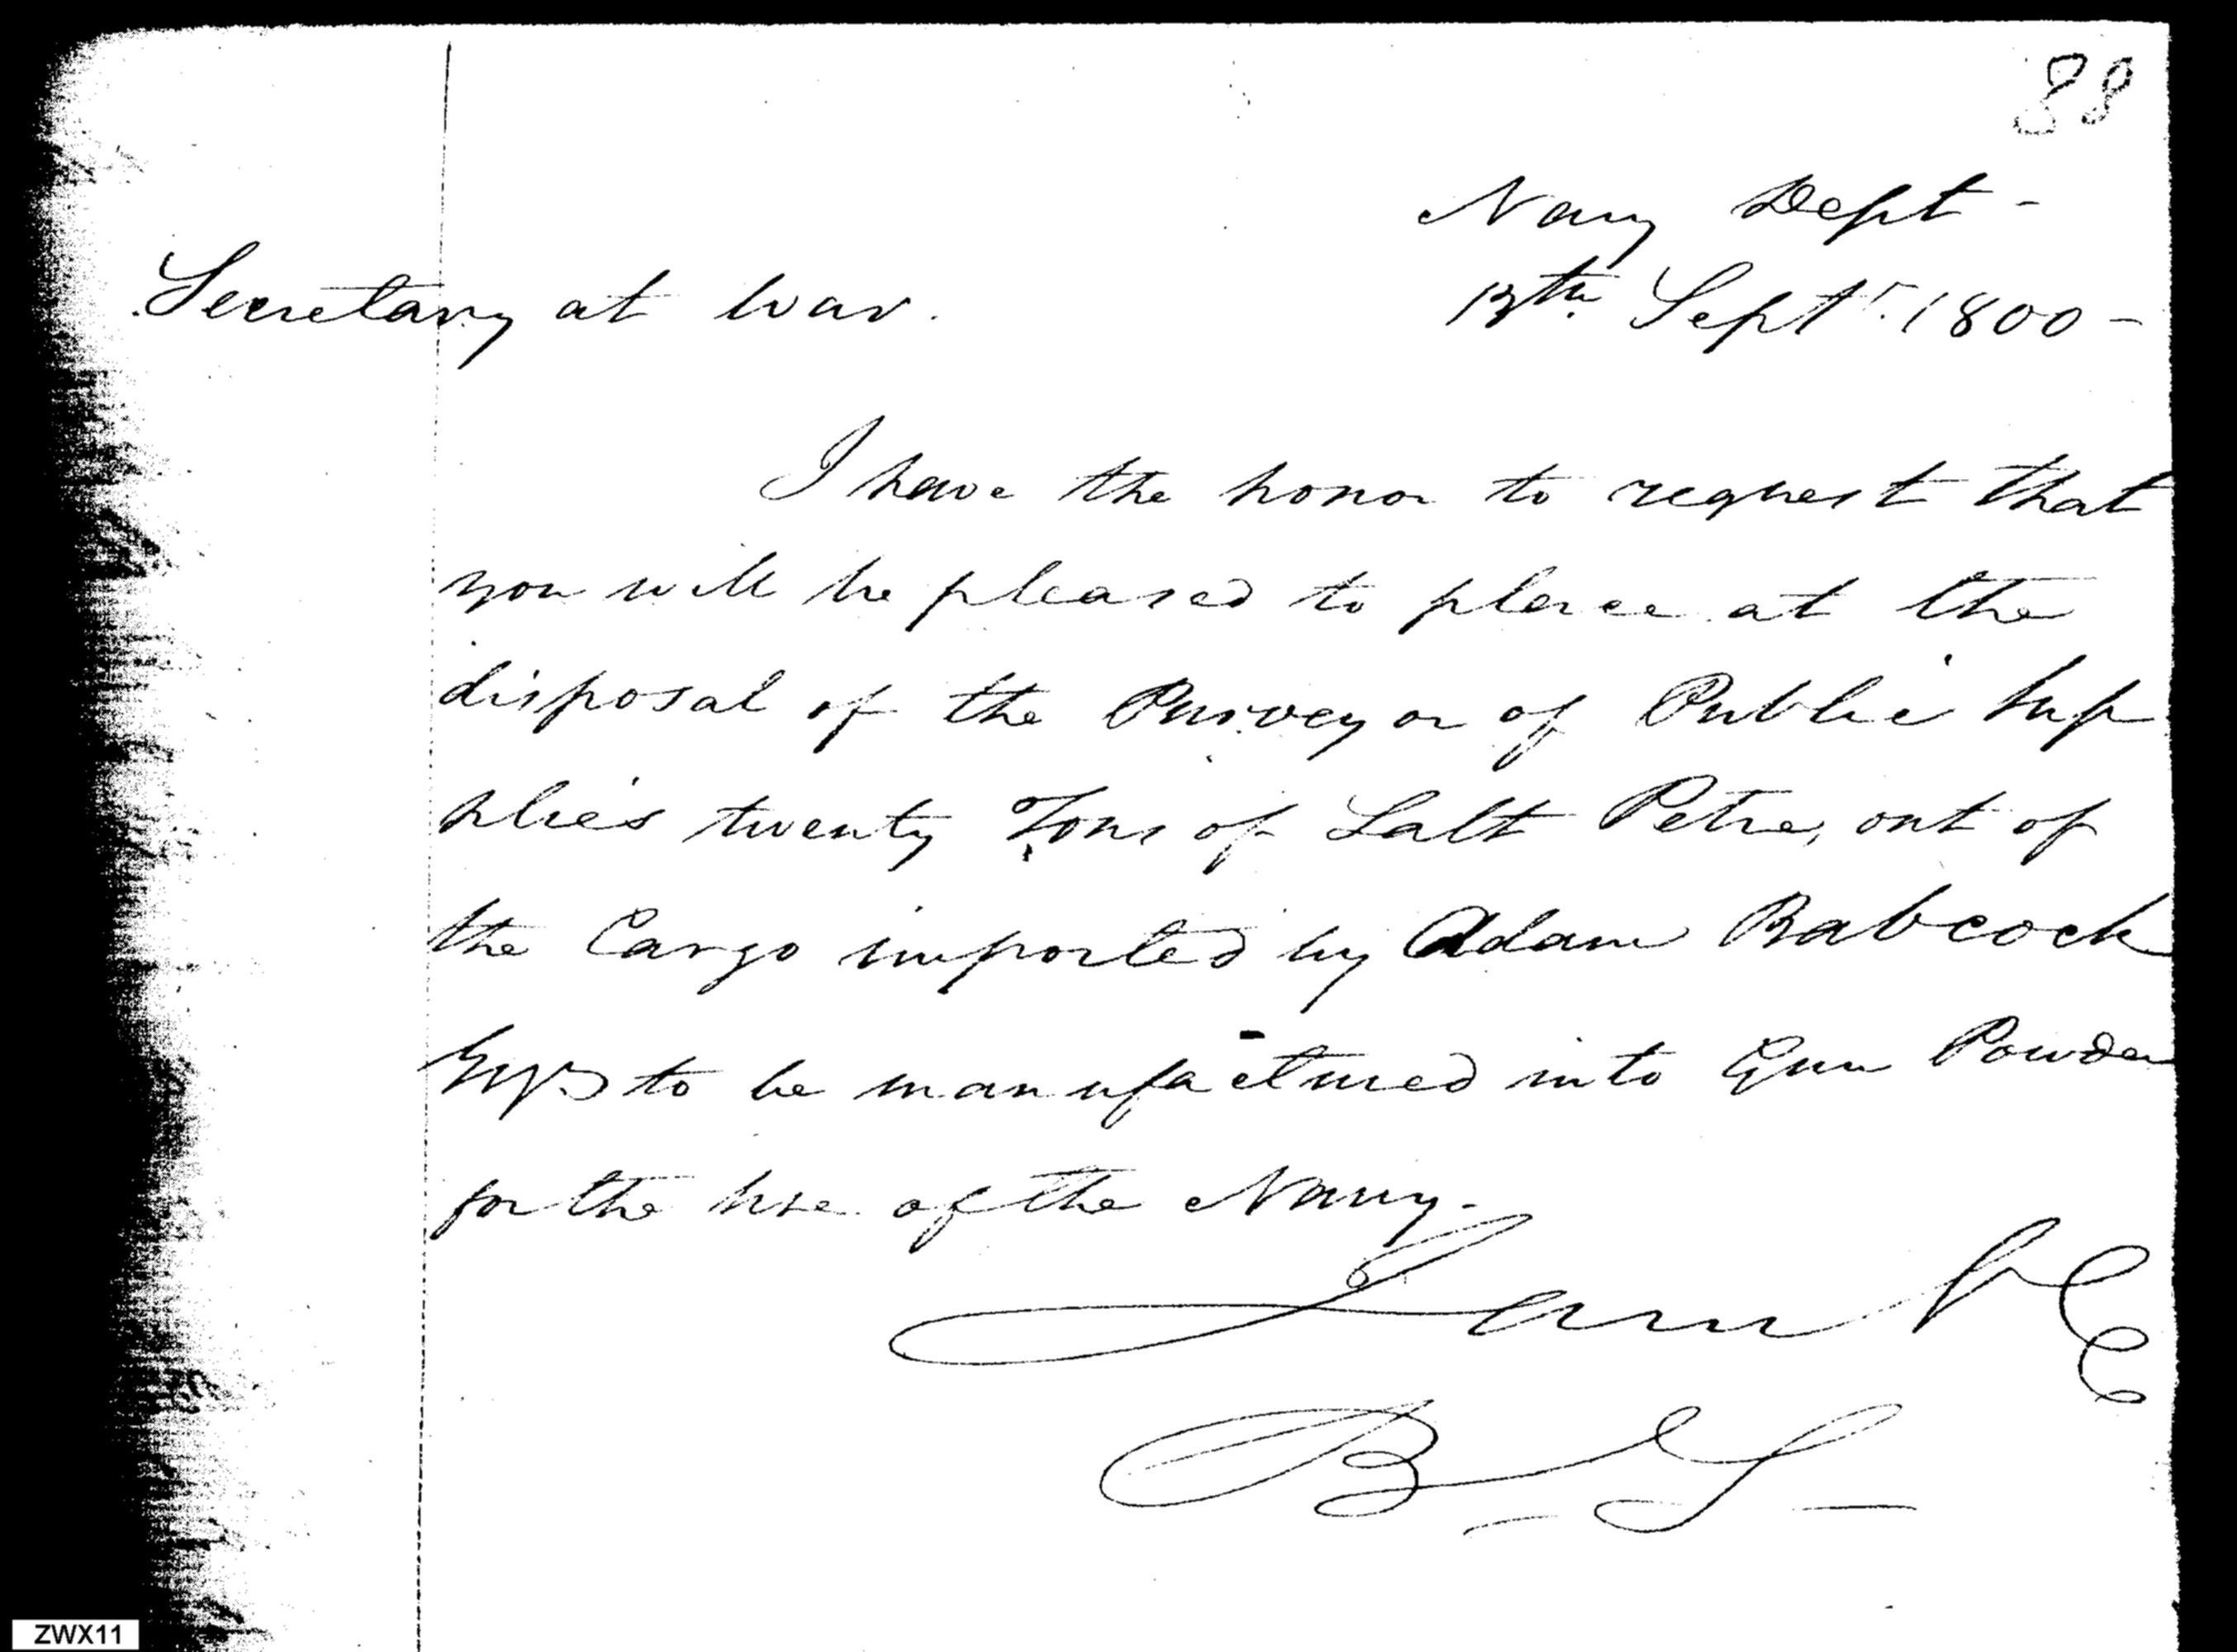 88
Navy Dept -
Secretary at War. 13th Septr. 1800 -
I have the honor to request that
you will be pleased to place at the
disposal of the Purveyor of Public Sup
plies twenty Tons of Salt Petre, out of
the Cargo imported by Adam Babcock
Esqr. to be manufactured into Gun Powder
for the use of the Navy.
I am &c
B S
ZWX11